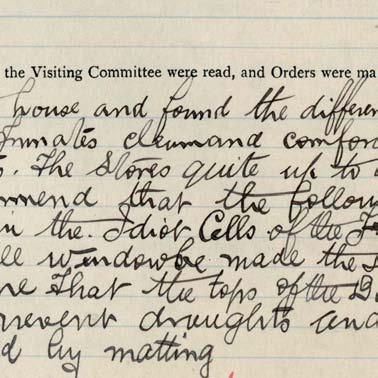 the Visiting Committee were read, and Orders were ma
house and found the differen
Inmates clean and comfor
s. The Stores quite up to
mmend that the follow
in the Idiot Cells of the
ll window be made the
re That the tops of the
revent draughts and
d by matting